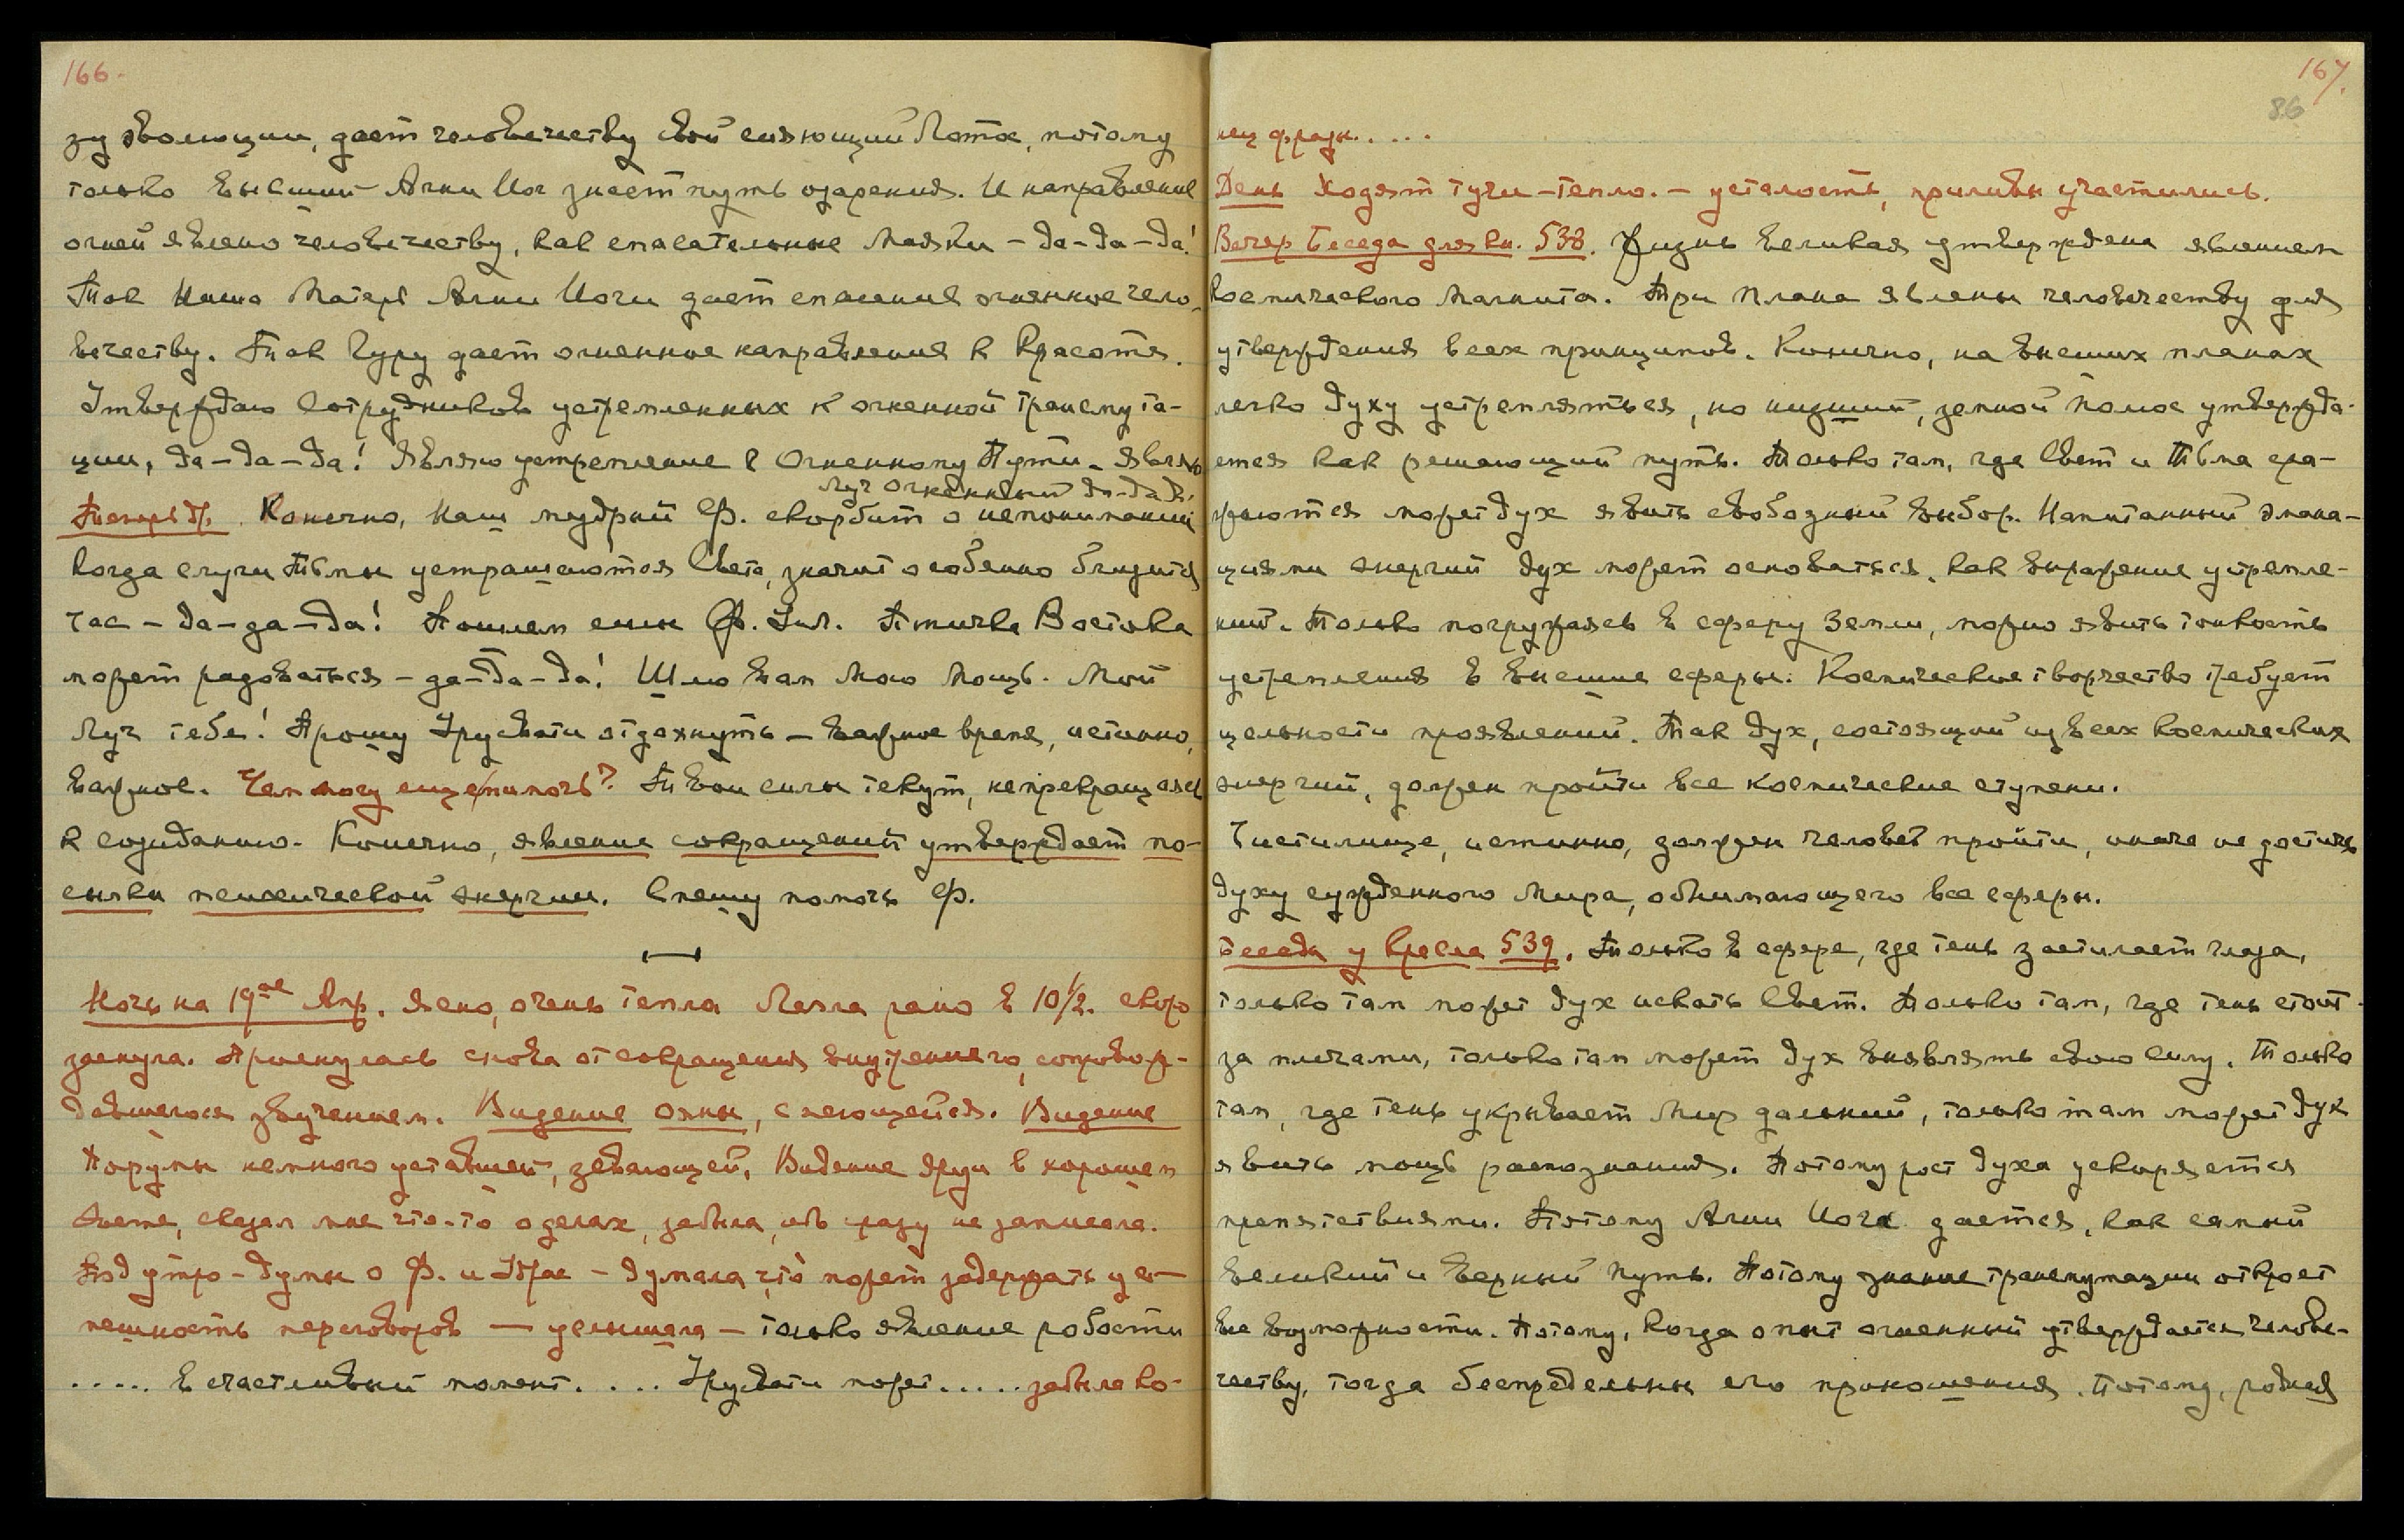 166.
зу эволюции, дает человечеству свой сияющий Лотос, потому
только высший Агни Йог знает путь озарения. И направление
огней явлено человечеству, как спасательные Маяки – да-да-да!
Так Наша Матерь Агни Йоги дает спасение огненное чело-
вечеству. Так Гуру дает огненное направление к Красоте.
Утверждаю Сотрудников устремленных к огненной трансмута-
ции, да-да-да! Являю устремление к Огненному Пути. Являю
Луч Огненный да-да-д.
Теперь др. Конечно, наш мудрый Ф. скорбит о непонимании
Когда слуги Тьмы устрашаются Света, значит особенно близится
час – да-да-да! Пошлем силы Ф. Ул. Птичка Востока
может радоваться – да-да-да! Шлю вам Мою Мощь. Мой
Луч тебе! Прошу Урусвати отдохнуть – важное время, истинно,
важное. Чем могу еще помочь? Твои силы текут, непрекращаясь
к созиданию. Конечно, явление сокращений утверждает по-
сылки психической энергии. Спешу помочь Ф.
Ночь на 19ое Апр. Ясно, очень тепло Легла рано в 10½. скоро
заснула. Проснулась снова от сокращения внутреннего, сопровож-
давшегося звучанием. Видение Ояны, смеющейся. Видение
Порумы немного уставшей, зевающей. Видение Яруи в хорошем
свете, сказал мне что-то о делах, забыла, ибо сразу не записала.
Под утро – думы о Ф. и – думала, что может задержать ус-
пешность переговоров — услышала – только явление робости
..... в счастливый момент.... Урусвати может..... забыла ко-
167.
86
нец фразы.....
День Ходят тучи – тепло. – усталость, приливы участились.
Вечер Беседа для кн. 538. Жизнь великая утверждена явлением
космического Магнита. Три плана явлены человечеству для
утверждения всех принципов. Конечно, на высших планах
легко духу устремляться, но низший, земной полюс утвержда-
ется как решающий путь. Только там, где Свет и Тьма сра-
жаются может дух явить свободный выбор. Напитанный эмана-
циями энергий дух может основаться, как выражение устремле-
ний. Только погружаясь в сферу Земли, можно явить тонкость
устремления в высшие сферы. Космическое творчество требует
цельности проявлений. Так дух, состоящий из всех космических
энергий, должен пройти все космические ступени.
Чистилище, истинно, должен человек пройти, иначе не достичь
духу сужденного Мира, обнимающего все сферы.
Беседа у Кресла 539. Только в сфере, где тень застилает глаза,
только там может дух искать Свет. Только там, где тень стоит
за плечами, только там может дух выявлять свою силу. Только
там, где тень укрывает Мир дальний, только там может дух
явить мощь распознания. Потому рост духа ускоряется
препятствиями. Потому Агни Йога дается, как самый
великий и верный Путь. Потому знание трансмутации откроет
все возможности. Потому, когда опыт огненный утверждается челове-
честву, тогда беспредельны его приношения. Потому, родная